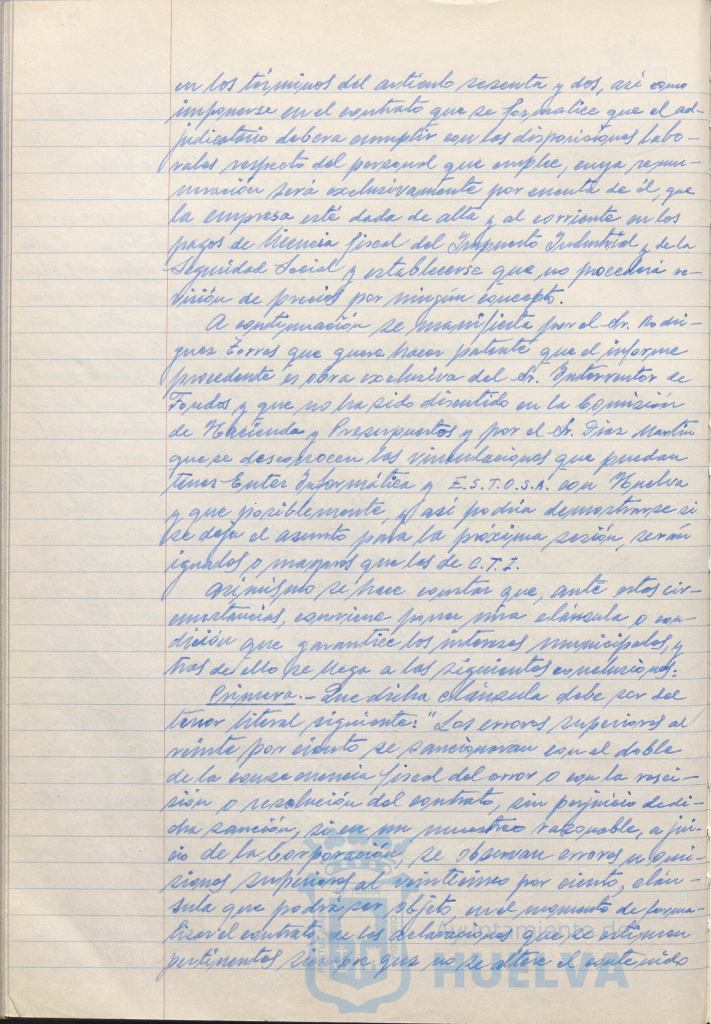 en los términos del artículo sesenta y dos, así como
imponerse en el contrato que se formalice que el ad-
judicatario deberá cumplir con las disposiciones labo-
rales respecto del personal que emplee, cuya remu-
neración será exclusivamente por cuenta de él, que
la empresa esté dada de alta y al corriente en los
pagos de licencia fiscal del Impuesto Industrial y de la
Seguridad Social y establecerse que no procederá re-
visión de precios por ningún concepto.
A continuación se manifiesta por el Sr. Rodrí-
guez Torres que quiere hacer patente que el informe
precedente es obra exclusiva del Sr. Interventor de
Fondos y que no ha sido discutido en la Comisión
de Hacienda y Presupuestos y por el Sr. Díaz Martín
que se desconocen las vinculaciones que puedan
tener Enter Informática y E.S.T.O.S.A. con Huelva
y que posiblemente, y así podría demostrarse si
se deja el asunto para la próxima sesión, serán
iguales o mayores que las de C.T.I.
Asimismo se hace constar que, ante estas cir-
cunstancias, conviene poner una cláusula o con-
dición que garantice los intereses municipales, y
tras de ello se llega a las siguientes conclusiones:
Primera.- Que dicha cláusula debe ser del
tenor literal siguiente: "Los errores superiores al
veinte por ciento se sancionarán con el doble
de la consecuencia fiscal del error o con la resci-
sión o resolución del contrato, sin perjuicio de di-
cha sanción, si en un muestreo razonable, a jui-
cio de la Corporación, se observan errores u omi-
siones superiores al veinticinco por ciento, cláu-
sula que podrá ser objeto, en el momento de forma-
lizar el contrato, de las aclaraciones que se estimen
pertinentes siempre que no se altere el contenido
Ayuntamiento de
HUELVA